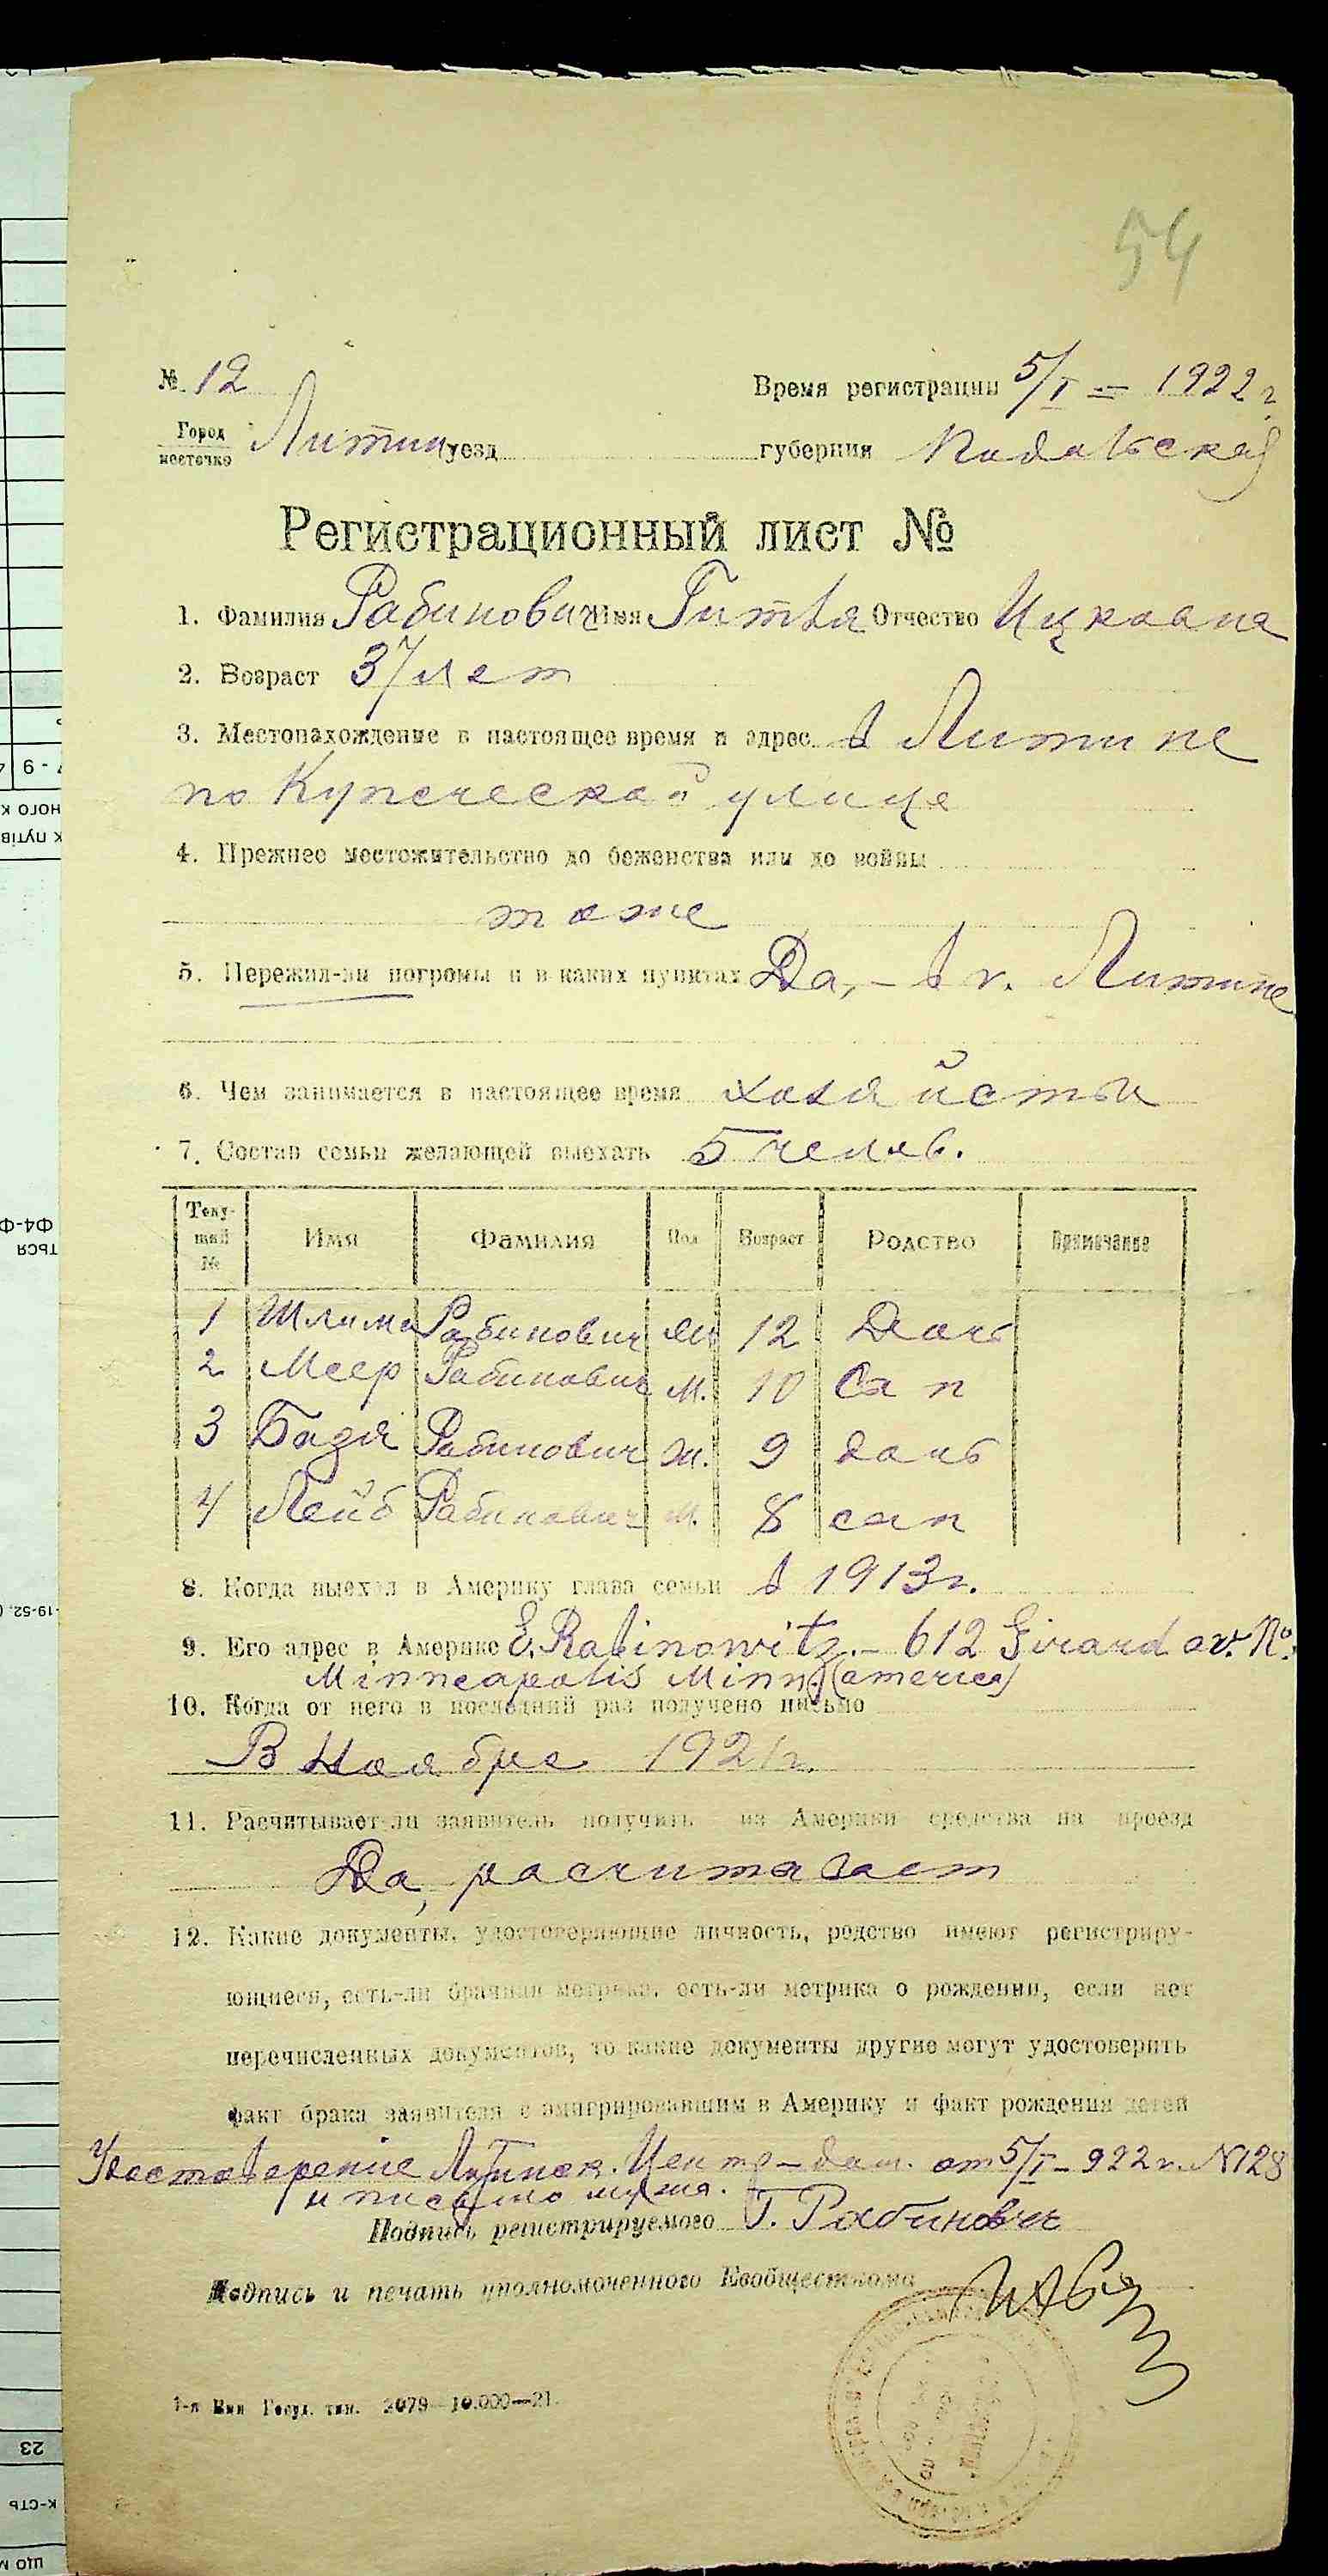 54
№ 12 Время регистрации 5/I – 1922 г.
Город местечко Литин уезд губерния Подольская
Регистрационный лист №
1. Фамилия Рабинович Имя Гитля Отчество Ицковна
2. Возраст 37 лет
3. Местонахождение в настоящее время и адрес в Литине
по Купеческой улице
4. Прежнее местожительство до беженства или до войны
тоже
5. Пережил-ли погромы и в каких пунктах Да, – в г. Литине
6. Чем занимается в настоящее время
7. Состав семьи желающей выехать 5 челов.
Теку-щий № Имя Фамилия Пол Возраст Родство Примечание
1 Шлима Рабинович 12 Дочь
2 Меер Рабинович м. 10 Сын
3 Базя Рабинович ж. 9 дочь
4 Лейб Рабинович м. 8 сын
8. Когда выехал в Америку глава семьи в 1913 г.
9. Его адрес в Америке E. Rabinowitz – 612 Girard av. No.
Minneapolis Minn. (america)
10. Когда от него в последний раз получено письмо
В Ноябре 1921 г.
11. Расчитывает-ли заявитель получить из Америки средства на проезд
Да, расчитывает
12. Какие документы, удостоверяющие личность, родство имеют регистриру-
ющиеся, есть-ли брачная метрика, есть-ли метрика о рождении, если нет
перечисленных документов, то какие документы другие могут удостоверить
факт брака заявителя с эмигрировавшим в Америку и факт рождения детей
от 5/I – 922 г. N 128
и письмо мужа.
Подпись регистрируемого Г. Рабинович
Подпись и печать уполномоченного Евобщесткома
1-я Вин Госуд. тип. 2079—10.000—21.